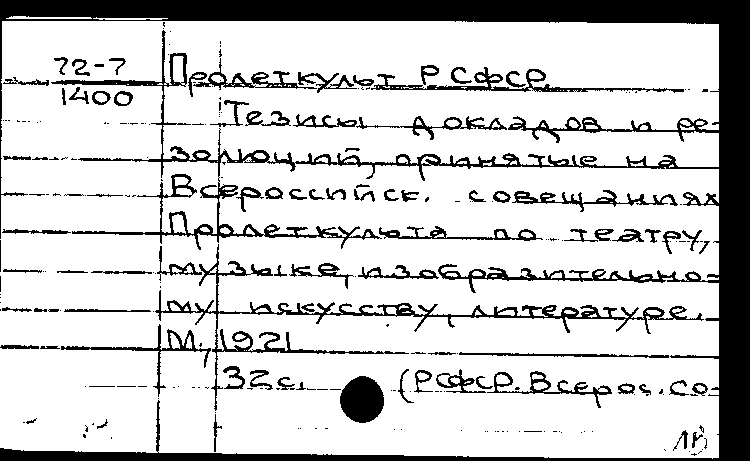 72-7
1400
Пролеткульт РСФСР.
Тезисы докладов и ре-
золюций, принятые на
Всероссийск. совещаниях
Пролеткульта по театру,
музыке, изобразительно-
му искусству, литературе.
М., 1921
32с. (РСФСР. Всерос. со-